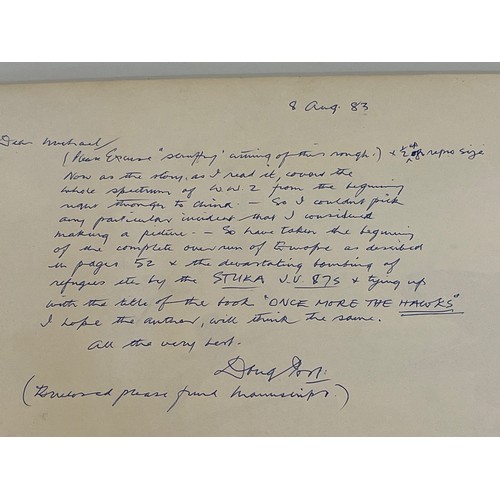 8 Aug. 83
Dear Michael
(Please Excuse "scruffy" writing of this rough.) + ½ up of repro size
Now as the story, as I read it, covers the
whole spectrum of WW2 from the beginning
right through to China. — So I couldn't pick
any particular incident that I considered
making a picture. — So have taken the beginning
of the complete over run of Europe as described
in pages 52 + the devastating bombing of
refugees etc by the STUKA J.U. 87s + tying up
with the title of the book "ONCE MORE THE HAWKS"
I hope the author, will think the same.
All the very best.
Doug
(Enclosed please find Manuscript.)